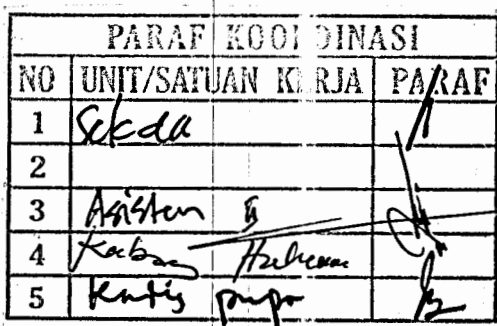 PARAF KOORDINASI
NO UNIT/SATUAN KERJA PARAF
1 Sekda
2
3 Asisten II
4 Kabag Hukum
5 Kadis